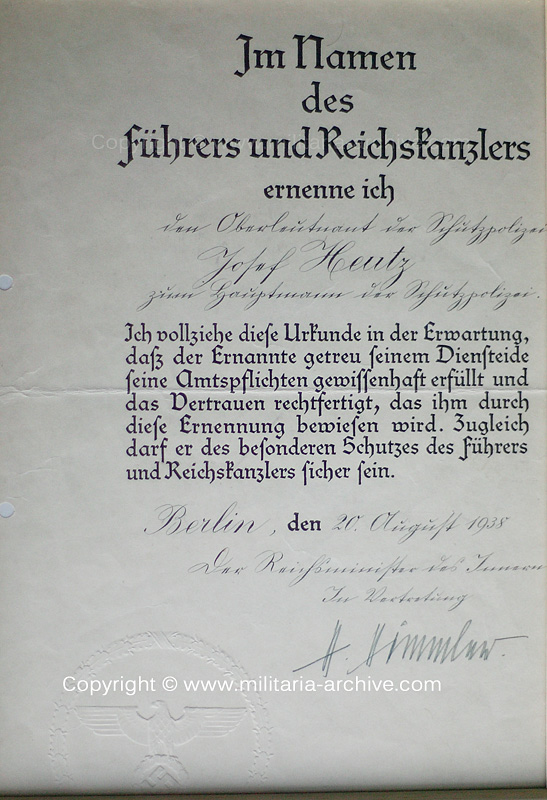 Im Namen
des
Führers und Reichskanzlers
ernenne ich
den Oberleutnant der Schutzpolizei
Josef Heutz
zum Hauptmann der Schutzpolizei.
Ich vollziehe diese Urkunde in der Erwartung,
daß der Ernannte getreu seinem Diensteide
seine Amtspflichten gewissenhaft erfüllt und
das Vertrauen rechtfertigt, das ihm durch
diese Ernennung bewiesen wird. Zugleich
darf er des besonderen Schutzes des Führers
und Reichskanzlers sicher sein.
Berlin, den 20. August 1938
Der Reichsminister des Innern
In Vertretung
H. Himmler.
Copyright © www.militaria-archive.com